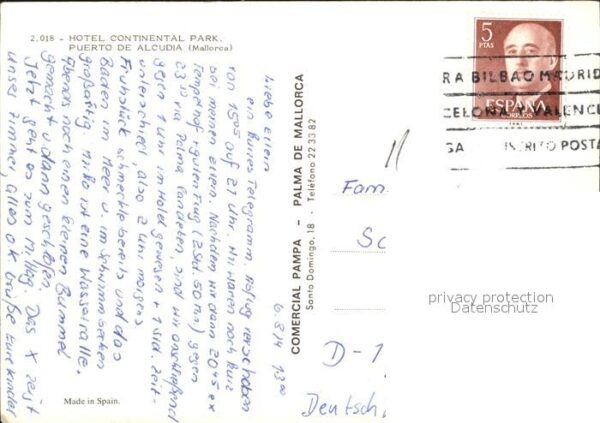 2.018 - HOTEL CONTINENTAL PARK.
PUERTO DE ALCUDIA (Mallorca)
6.8/4 1300
Liebe Eltern
ein kurzes Telegramm. Abflug verschoben
von 1505 auf 21 Uhr. Wir waren noch kurz
bei meinen Eltern. Nachdem wir dann 2045 ex
Tempelhof + guten Flug (2 Std 50 min) gegen
23 via Palma landeten, sind wir anschließend
gegen 1 Uhr im Hotel gewesen + 1 Std. Zeit-
unterschied, also 2 Uhr morgens
Frühstück schmeckte bereits und das
Baden im Meer u. im Schwimmbecken
großartig. Mirko ist eine Wasserralle.
noch einen kleinen Bummel
gemacht u. dann geschlafen
Jetzt geht es zum Mittag. Das X zeigt
unser Zimmer, alles ok Grüße Eure Kinder
Made in Spain.
COMERCIAL PAMPA - PALMA DE MALLORCA
Santo Domingo, 18 - Teléfono 22 33 82
5
PTAS
ESPAÑA
CORREOS
RA BILBAO MADRID
CELONA Y VALENC
SA
STRITO POSTA
Fam
Sc
D-1
Deutsch
privacy protection
Datenschutz